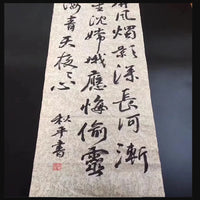 屏風燭影深長河漸
星沈嫦娥應悔偷靈
海青天夜夜心
秋平書